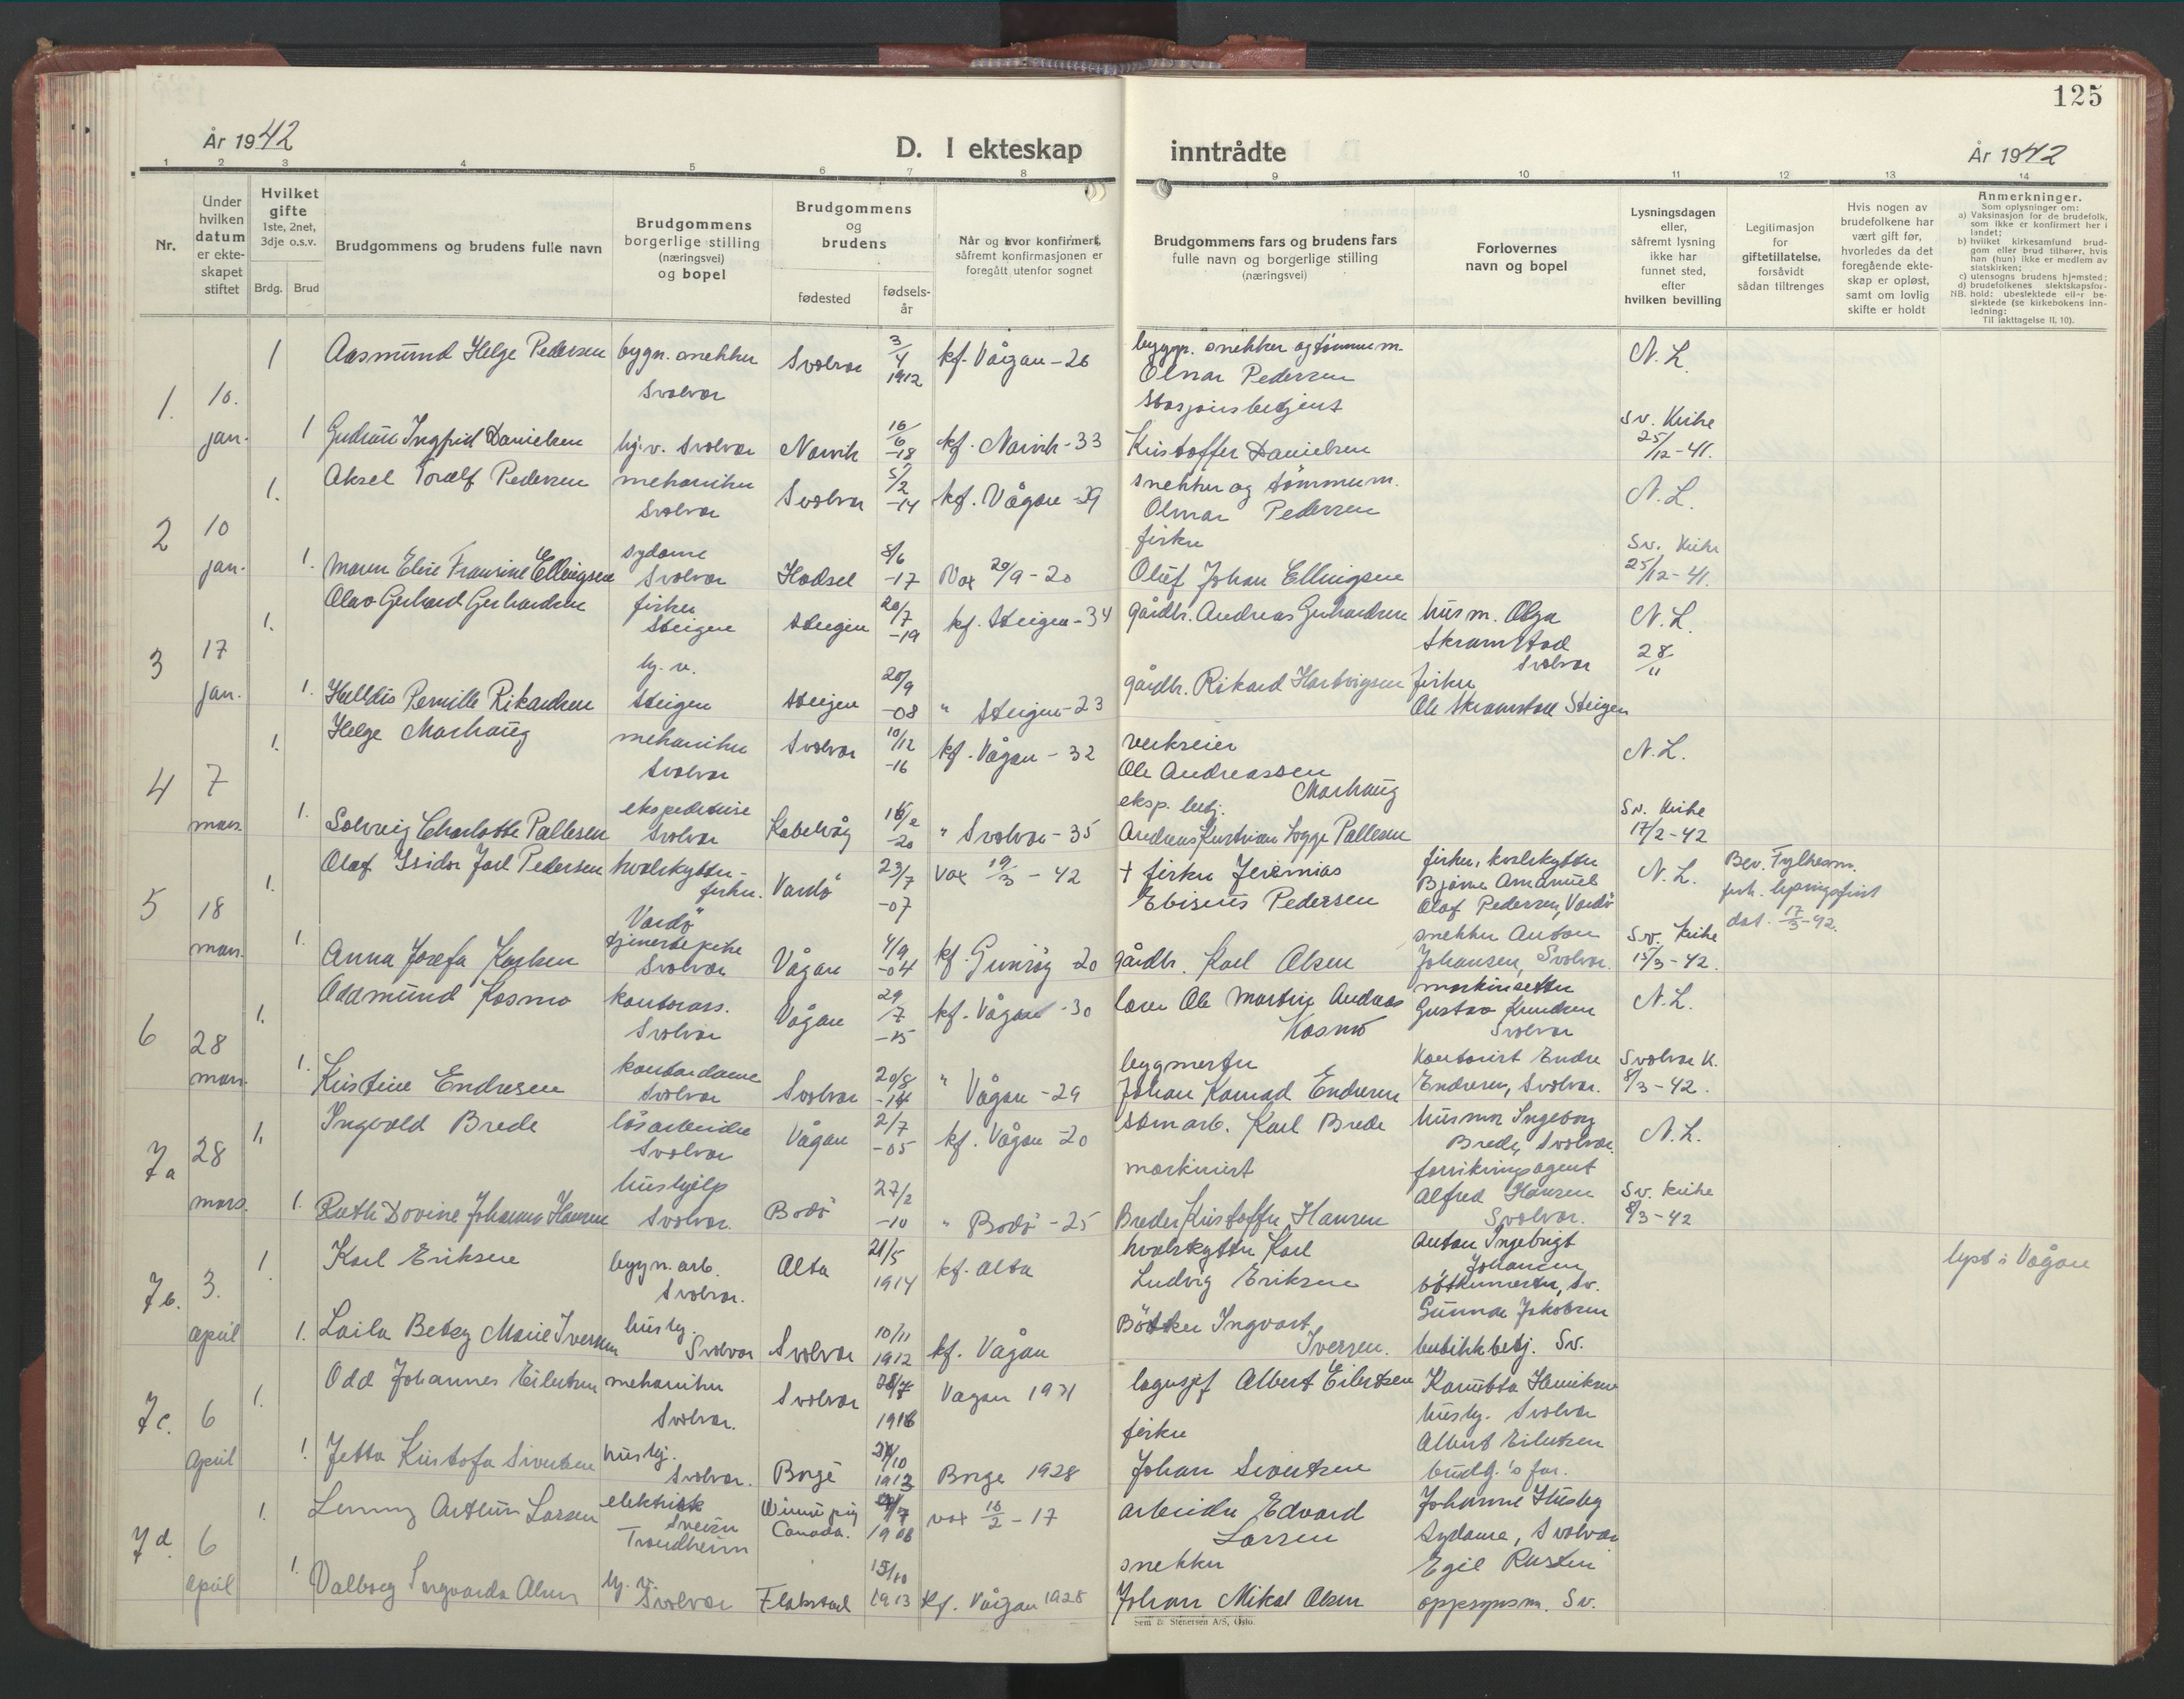 125
År 1942
D. I ekteskap inntrådte
År 1942
1 2 3 4 5 6 7 8 9 10 11 12 13 14
Nr.
Under hvilken datum er ekte-skapet stiftet
Hvilket gifte 1ste, 2net, 3dje o.s.v.
Brdg. Brud
Brudgommens og brudens fulle navn
Brudgommens borgerlige stilling (næringsvei) og bopel
Brudgommens og brudens
fødested
fødsels-år
Når og hvor konfirmert, såfremt konfirmasjonen er foregått utenfor sognet
Brudgommens fars og brudens fars fulle navn og borgerlige stilling (næringsvei)
Forlovernes navn og bopel
Lysningsdagen eller, såfremt lysning ikke har funnet sted, efter hvilken bevilling
Legitimasjon for giftetillatelse, forsåvidt sådan tiltrenges
Hvis nogen av brudefolkene har vært gift før, hvorledes da det foregående ekte-skap er opløst, samt om lovlig skifte er holdt
Anmerkninger.
Som oplysninger om:
a) Vaksinasjon for de brudefolk, som ikke er konfirmert her i landet;
b) hvilket kirkesamfund brud-gom eller brud tilhører, hvis han (hun) ikke er medlem av statskirken;
c) utensogns brudens hjemsted;
d) brudefolkenes slektskapsfor-hold: ubeslektede eller be-slektede (se kirkebokens inn-ledning:
NB.
Til iakttagelse II, 10).
1. 10. jan.
1 Aasmund Helge Pedersen bygn. snekker Svolvær Svolvær 3/4 1912 kf. Vågan - 26 byggn. snekker og tømmerm. Olmar Pedersen N.L.
1 Gudrun Ingfrid Danielsen hj.v. Svolvær Narvik 16/6 -18 kf. Narvik - 33 Stasjonsbetjent Kristoffer Danielsen Sv. Kirke 25/12 - 41.
2 10 jan.
1. Aksel Toralf Pedersen mekaniker Svolvær Svolvær 5/2 -14 kf. Vågan - 29 snekker og tømmerm. Olmar Pedersen N.L.
1. Maren Eline Fransine Ellingsen sydame Svolvær Hadsel 8/6 -17 Vax 20/9 - 20 fisker Oluf Johan Ellingsen Sv. Kirke 25/12 - 41.
3 17 jan.
1. Olav Gerhard Gerhardsen fisker Steigen Steigen 20/7 -19 kf. Steigen - 34 gårdbr. Andreas Gerhardsen husm. Olga Skramstad Svolvær N.L. 28/11
1. Halldis Pernille Rikardsen hj. v. Steigen Steigen 20/9 -08 " Steigen - 23 gårdbr. Rikard Hartvigsen fisker Ole Skramstad Steigen
4 7 mars.
1. Helge Marhaug mekaniker Svolvær Svolvær 10/12 -16 kf. Vågan - 32 verkseier Ole Andreassen Marhaug N.L.
1. Solveig Charlotte Pallesen ekspeditrise Svolvær Kabelvåg 16/2 -20 " Svolvær - 35 eksp. betj. Andreas Kristian Logge Pallesen Sv. Kirke 17/2 - 42
5 18 mars.
1. Olaf Isidor Jarl Pedersen hvalskytter - fisker. Vardö Vardö 23/7 -07 Vax 19/3 - 42 + fisker Jeremias Ebiseus Pedersen fisker, hvalskytter Bjarne Amanuel Olaf Pedersen, Vardö N.L. Bev. Fylkesm. fork. lysningsfrist dat. 17/3 - 42.
1. Anna Josefa Karlsen tjenestepike Svolvær Vågan 4/9 -04 kf. - 20 gårdbr. Karl Olsen snekker Anton Johansen, Svolvær. Sv. Kirke 15/3 - 42.
6 28 mars.
1. Oddmund Kosmo kontorass. Svolvær Vågan 29/7 -15 kf. Vågan - 30 Ole Martin Andreas Kosmo maskinsetter Gustav Knudsen Svolvær N.L.
1. Kristine Endresen kontordame Svolvær Svolvær 20/8 -14 " Vågan - 29 byggmester Johan Konrad Endresen Kontorist Endre Endresen, Svolvær. Svolvær K. 8/3 - 42.
7a 28 mars.
1. Ingvald Brede løsarbeider Svolvær Vågan 2/7 -05 kf. Vågan - 20 Karl Brede husmor Ingeborg Brede, Svolvær. N.L.
1. Ruth Dovine Johanna Hansen hushjelp Svolvær. Bodö 27/2 -10 " Bodö - 25 maskinist Breder Kristoffer Hansen forsikringsagent Alfred Hansen Svolvær. Sv. kirke 8/3 - 42
7b. 3. april
1. Karl Eriksen bygn. arb. Svolvær. Alta 21/5 1914 kf. Alta hvalskytter Karl Ludvig Eriksen Anton Ingebrigt Johansen bötkermester, Sv. lyst i Vågan
1. Laila Betzy Marie Iversen hushj. Svolvær Svolvær 10/11 1912 kf. Vågan Bötker Ingvart Iversen. Gunnar Jakobsen butikkbetj. Sv.
7c. 6 april
1. Odd Johannes Eilertsen mekaniker Svolvær. Svolvær 1916 Vågan 1931 lagersjef Albert Eilertsen Henriksen hushj. Svolvær
1. Jetta Kristofa Sivertsen hushj. Svolvær. Borge 1913 Borge 1928 fisker Johan Sivertsen Albert Eilertsen brudg.'s far.
7d. 6 april
1. Arthur Larsen elektrisk sveiser Trondheim Winnipig Canada. 1908 vax 16/2 - 17 arbeider Edvard Larsen Johanne Husby Sydame, Svolvær
1. Valborg Ingvarda Olsen hj. v. Svolvær Flakstad 15/10 1913 kf. Vågan 1928 snekker Johan Mikal Olsen Egil Rustin oppsynsm. Sv.
Sem & Stenersen A/S, Oslo.